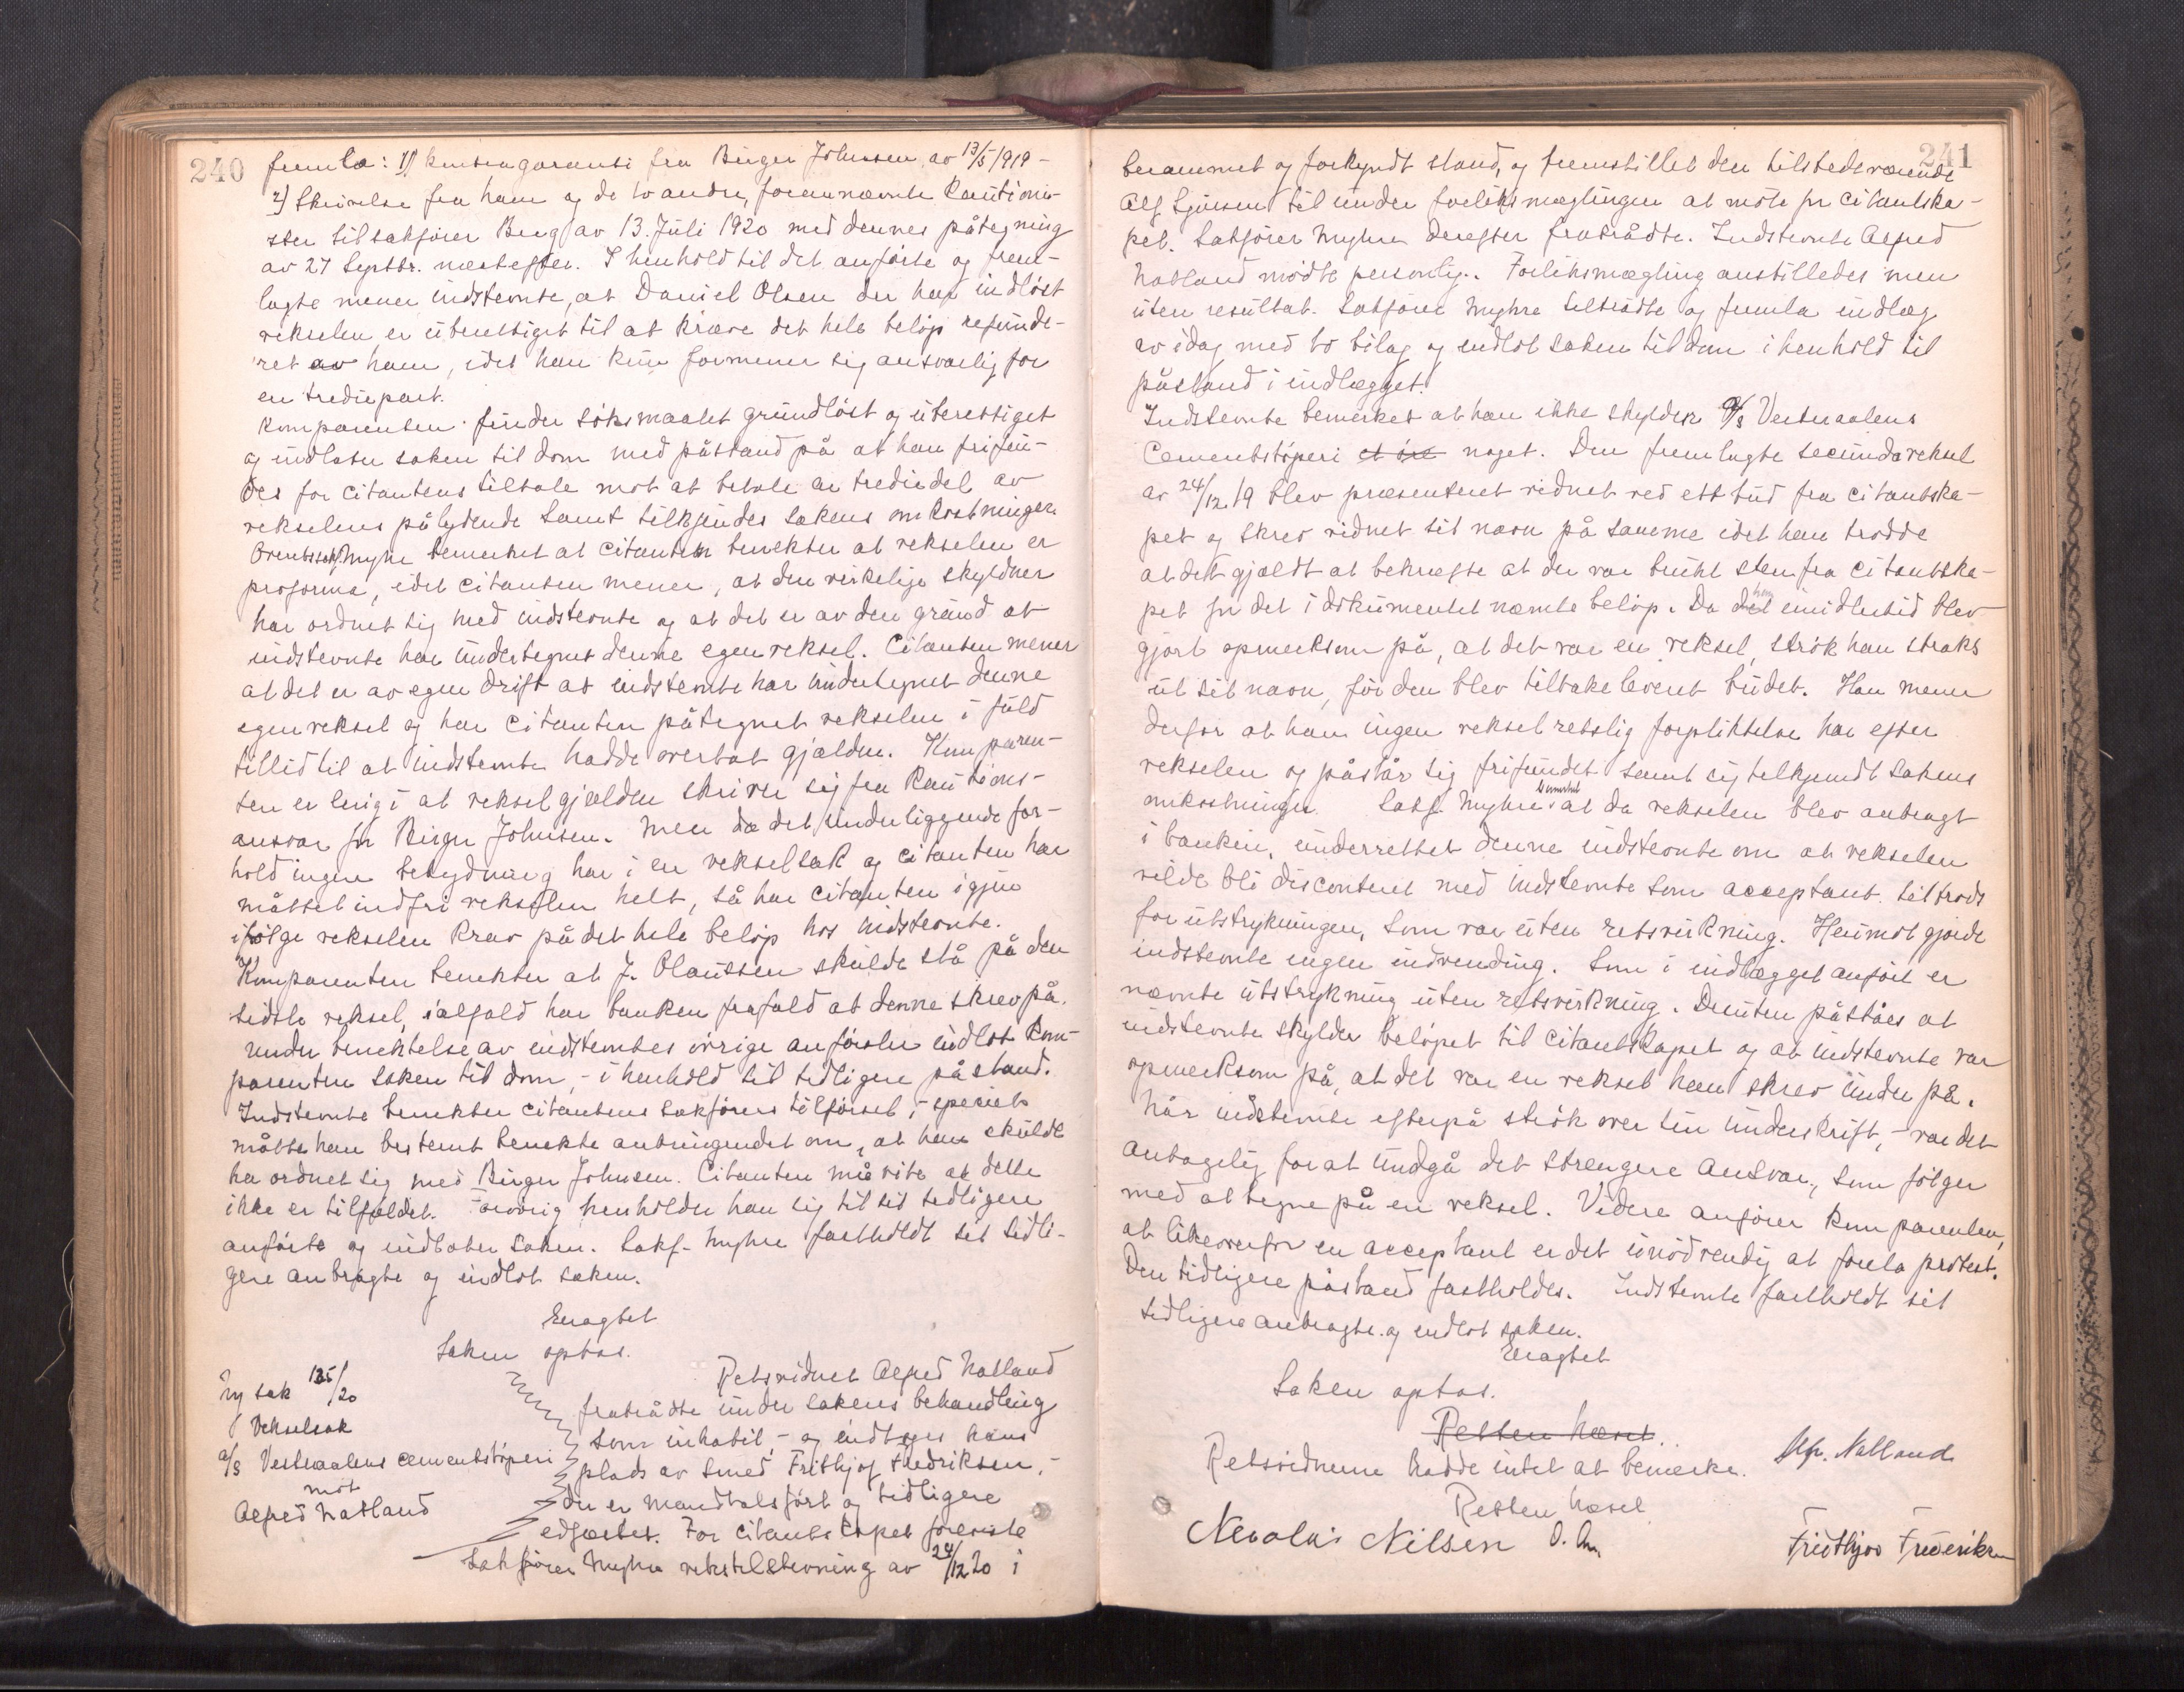 240
fremla: 1) kausjonsgaranti fra Birger Johnsen av 13/5/1919 -
2) Skrivelse fra ham og de to andre, forannævnte kautioni-
ster til sakfører Berg av 13. Juli 1920 med dennes påtegning
av 27 Septbr. næstefter. I henhold til det anførte og frem-
lagte mener indstevnte, at Daniel Olsen der har indløst
vekselen er uberettiget til at kræve det hele beløp refunde-
ret av ham, idet han kun formener sig ansvarlig for
en trediepart.
Komparenten finder søksmaalet grundløst og uberettiget
og indlater saken til dom med påstand på at han frifin-
des for citantens tiltale mot at betale en trediedel av
vekselens pålydende samt tilkjendes sakens omkostninger.
Overretssakf. Myhre bemerket at citanten benekter at vekselen er
proforma, idet citanten mener, at den virkelige skyldner
har ordnet sig med indstevnte og at det er av den grund at
indstevnte har undertegnet denne egenveksel. Citanten mener
at det er av egen drift at indstevnte har undertegnet denne
egenveksel og har citanten påtegnet vekselen i fuld
tillid til at indstevnte hadde overtat gjælden. Komparen-
ten er enig i at vekselgjælden skriver sig fra kautions-
ansvar for Birger Johnsen. Men da det underliggende for-
hold ingen betydning har i en vekselsak og citanten har
måttet indfri vekselen helt, så har citanten igjen
ifølge vekselen krav på det hele beløp hos indstevnte.
Komparenten benekter at J. Olaussen skulde stå på den
sidste veksel, ialfald har banken frafald at denne skrev på.
Under benektelse av indstevntes øvrige anførsler indlot kom-
parenten saken til dom, - i henhold til tidligere påstand.
Indstevnte benekter citantens sakførers tilførsel, - specielt
måtte han bestemt benekte anbringendet om, at han skulde
ha ordnet sig med Birger Johnsen. Citanten må vite at dette
ikke er tilfældet. Forøvrig henholder han sig til sit tidligere
anførte og indlater saken. Sakf. Myhre fastholdt sit tidli-
gere anbragte og indlot saken.
Eragtet
Saken optas.
Ny sak 125/20
Vekselsak
A/S Vesteraalens cementstøperi
mot
Alfred Natland
Retsvidnet Alfred Natland
fratrådte under sakens behandling
som inhabil, - og indtages hans
plads av smed Frithjof Fredriksen, -
der er mandtalsført og tidligere
edfæstet. For citantskapet foreviste
Sakfører Myhre vekselstevning av 24/12 20 i
241
berammet og forkyndt stand, og fremstillet den tilstedeværende
Alf Sjursen til under forliksmæglingen at møte for citantska-
pet. Sakfører Myhre derefter fratrådte. Indstevnte Alfred
Natland mødte personlig. Forliksmægling anstilledes men
uten resultat. Sakfører Myhre tiltrådte og fremla indlæg
av idag med to bilag og indlot saken til dom i henhold til
påstand i indlægget.
Indstevnte bemerket at han ikke skylder A/S Vesteraalens
Cementstøperi et øre noget. Den fremlagte secundaveksel
av 24/12 19 blev præsenteret vidnet ved ett bud fra citantska-
pet og skrev vidnet sit navn på samme idet han trodde
at det gjældt at bekræfte at der var brukt sten fra citantska-
pet for det i dokumentet nævnte beløp. Da det han imidlertid blev
gjort opmerksom på, at det var en veksel, strøk han straks
ut sit navn, før den blev tilbakeleveret budet. Han mener
derfor at han ingen vekselretslig forpliktelse har efter
vekselen og påstår sig frifundet samt sig tilkjendt sakens
omkostninger. Sakf. Myhre bemerket at da vekselen blev anbragt
i banken, underrettet denne indstevnte om at vekselen
vilde bli disconteret med indstevnte som acceptant tiltrods
for utstrykningen, som var uten retsvirkning. Herimot gjorde
indstevnte ingen indvending. Som i indlægget anført er
nævnte utstrykning uten retsvirkning. Desuten påståes at
indstevnte skylder beløpet til citantskapet og at indstevnte var
opmerksom på, at det var en veksel han skrev under på.
Når indstevnte efterpå strøk over sin underskrift, - var det
antagelig for at undgå det strengere ansvar, som følger
med at tegne på en veksel. Videre anfører komparenten,
at likeoverfor en acceptant er det unødvendig at foreta protest.
Den tidligere påstand fastholdes. Indstevnte fastholdt sit
tidligere anbragte og indlot saken.
Eragtet
Saken optas.
Retten hævet.
Retsvidnerne hadde intet at bemerke.
Alfr. Natland
Retten hævet
Nicolai Nilsen
Fridthjov Frederiksen